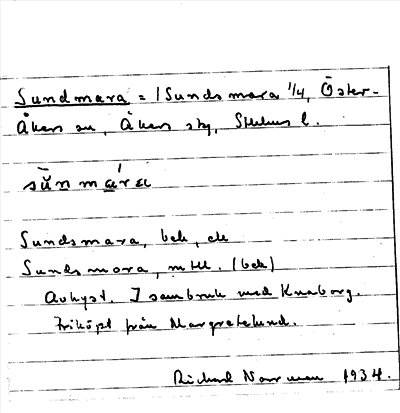 Sundmara = /Sundsmara 1/4, Öster-
Åkers sn, Åkers sky, Sthlms l.
sŭ̄n márα
Sundsmara, bek, ek
Sundsmora, mtl. (bek)
Avkyst. I sambruk med Knaborg.
Friköpt från Margretelund.
Richard Norrman 1934.